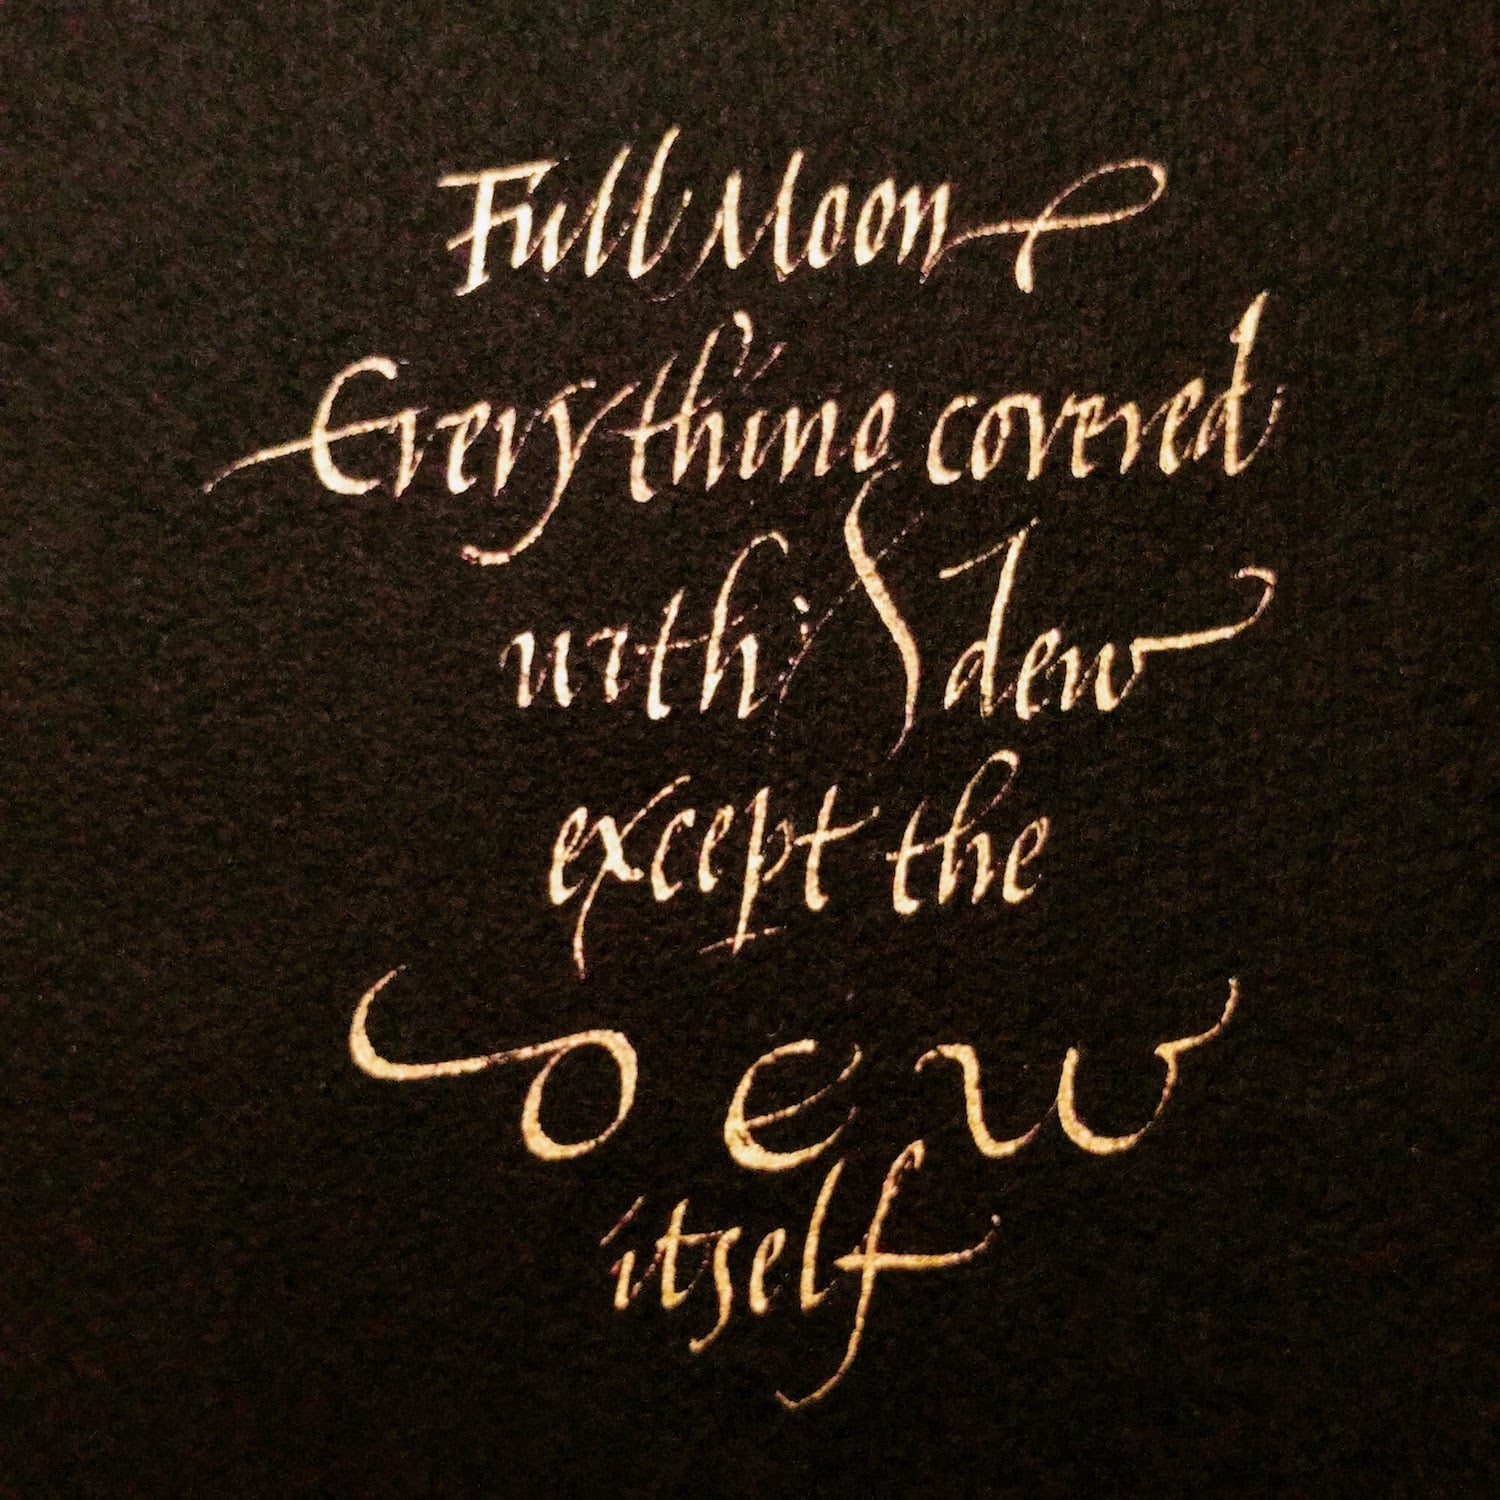 Full Moon
Everything covered
with dew
except the
dew
itself